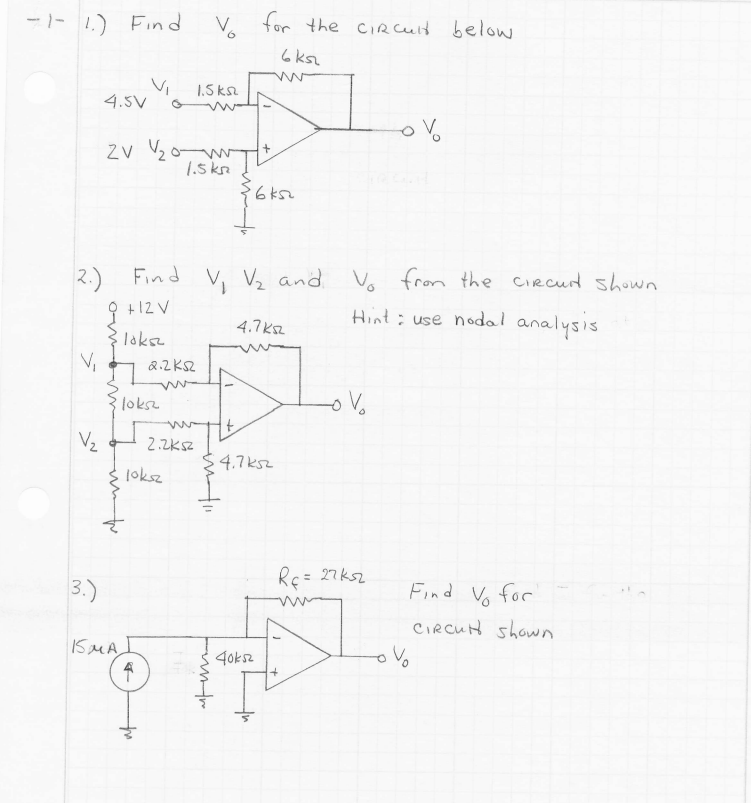 -1- 1.) Find Vo for the circuit below
6kΩ
V1 1.5kΩ
4.5V
-
Vo
2V V2
+
1.5kΩ
6kΩ
2.) Find V1 V2 and Vo from the circuit shown
+12V
Hint: use nodal analysis
4.7kΩ
10kΩ
V1
2.2kΩ
-
10kΩ
Vo
+
V2
2.2kΩ
4.7kΩ
10kΩ
Rf = 27kΩ
3.)
Find Vo for
circuit shown
15μA
-
40kΩ
Vo
+